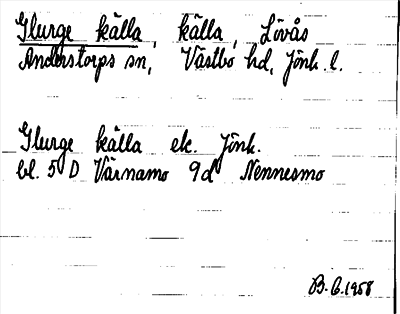 Glurge källa, källa, Lövås
Anderstorps sn, Västbo hd, Jönk. l.
Glurge källa ek. Jönk.
bl. 5 D Värnamo 9d Nennesmo
B. G. 1958